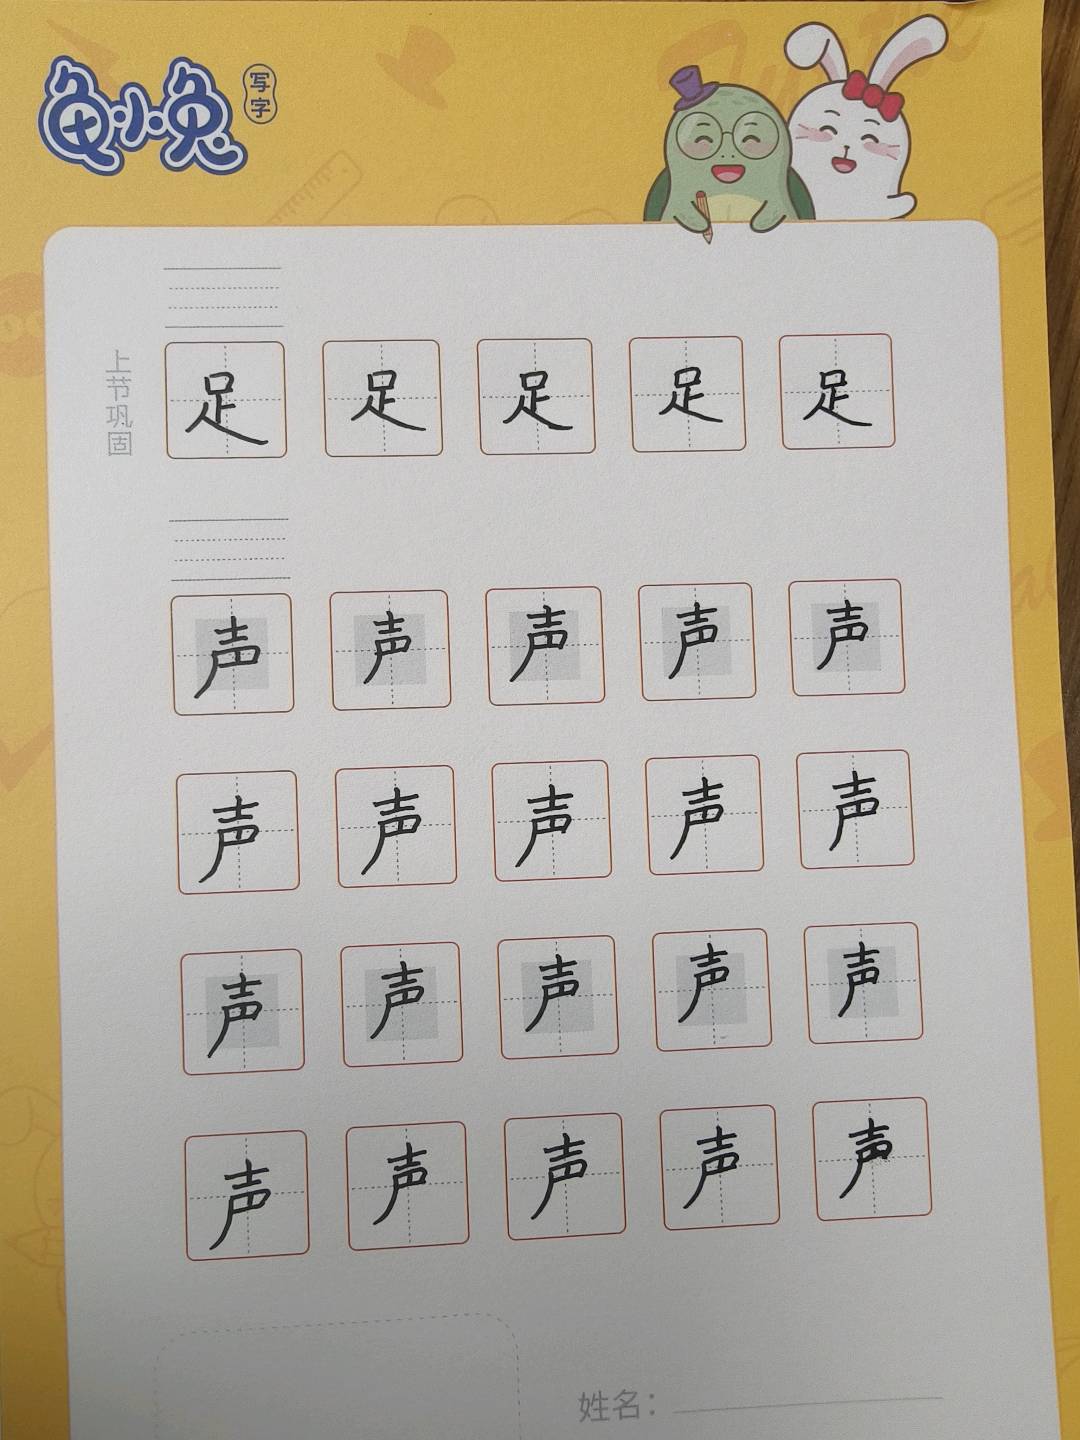 龟小兔
写字
上节巩固
足 足 足 足 足
声 声 声 声 声
声 声 声 声 声
声 声 声 声 声
声 声 声 声 声
姓名：